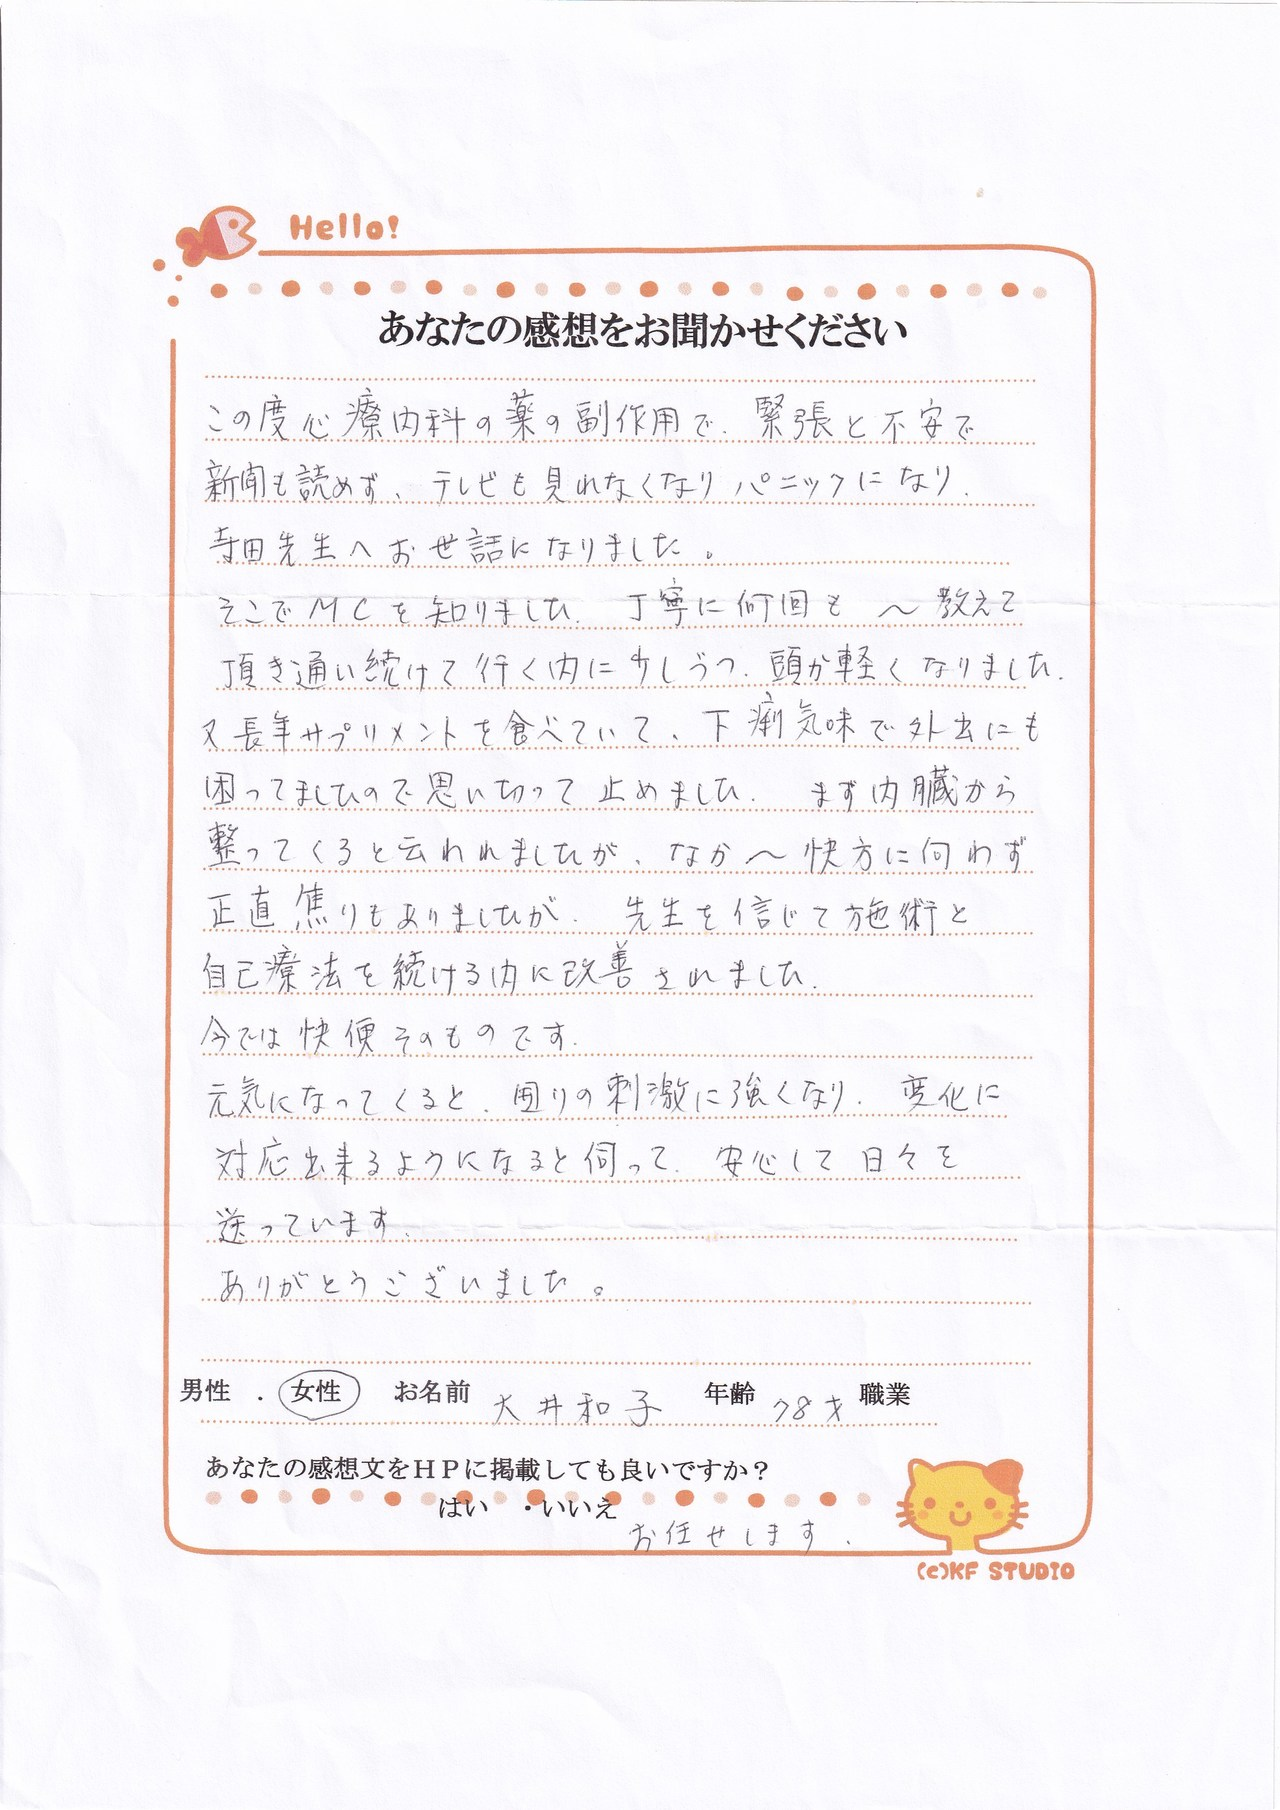 Hello!
あなたの感想をお聞かせください
この度心療内科の薬の副作用で、緊張と不安で
新聞も読めず、テレビも見れなくなりパニックになり、
寺田先生へお世話になりました。
そこでMCを知りました。丁寧に何回も〜教えて
頂き通い続けて行く内に少しづつ、頭が軽くなりました。
又長年サプリメントを食べていて、下痢気味で外出にも
困ってましたので思い切って止めました。まず内臓から
整ってくると云われましたが、なか〜快方に向わず
正直焦りもありましたが、先生を信じて施術と
自己療法を続ける内に改善されました。
今では快便そのものです。
元気になってくると、囲りの刺激に強くなり、変化に
対応出来るようになると伺って、安心して日々を
送っています。
ありがとうございました。
男性 . 女性 お名前 大井和子 年齢 78才 職業
あなたの感想文をHPに掲載しても良いですか？
はい ・いいえ
お任せします.
(c)KF STUDIO